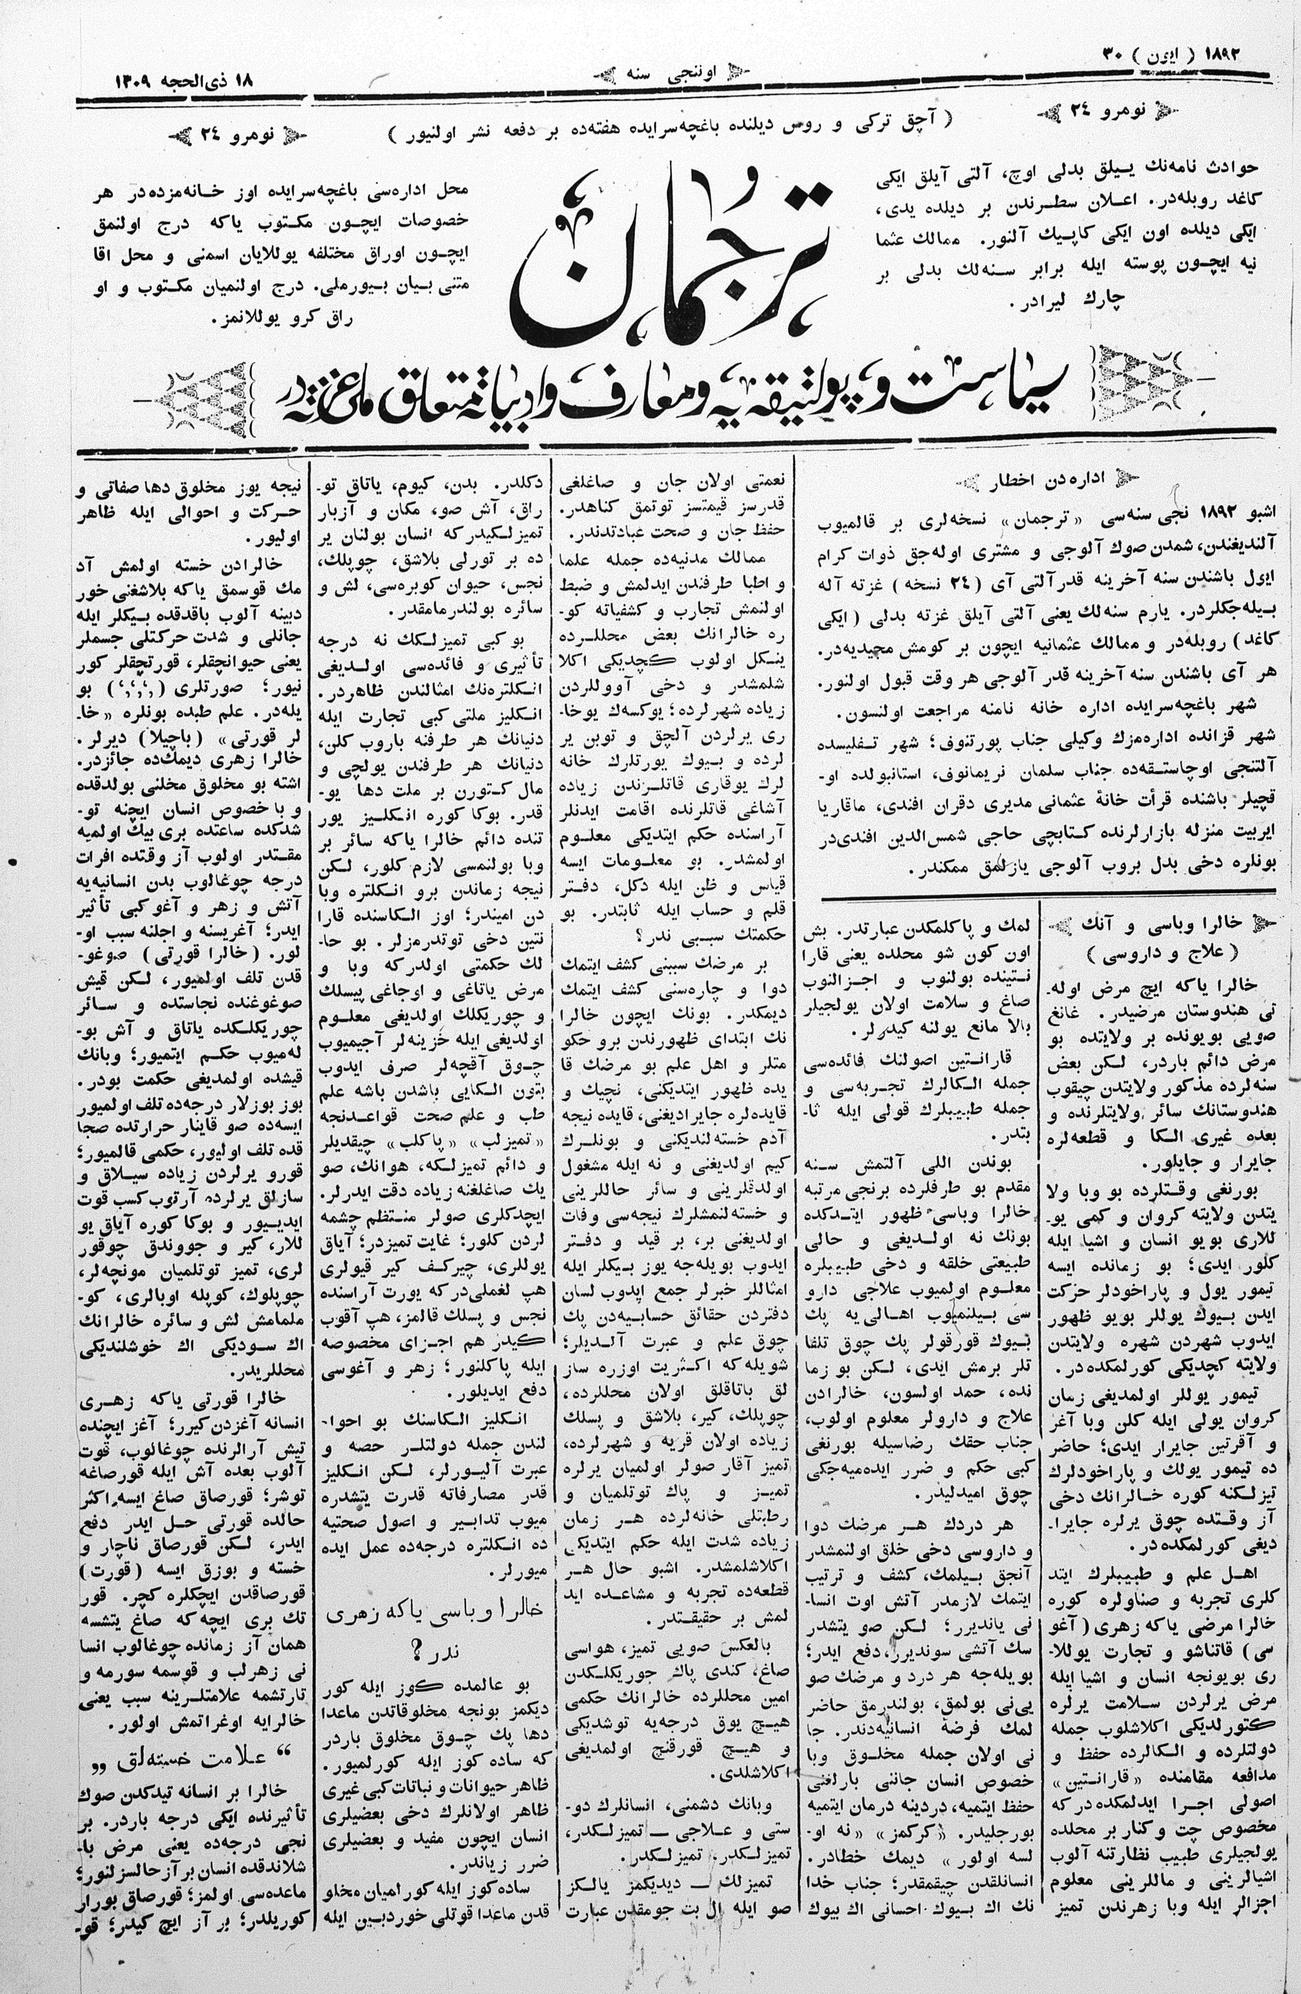 ۱۸۹۲ ( ایون ) ۳۰
اوننجی سنه
۱۸ ذی الحجه ۱۳۰۹
نومرو ۲٤
( آچق ترکی و روس دیلنده باغچه‌سرایده هفته‌ده بر دفعه نشر اولنیور )
نومرو ۲٤
حوادث نامه‌نك ییللق بدلی اوچ، آلتی آیلق ایکی
کاغد روبله‌در. اعلان سطرندن بر دیلده یدی،
ایکی دیلده اون ایکی کاپیك آلنور. ممالك عثما
نیه ایچون پوسته ایله برابر سنه‌لك بدلی بر
چارك لیرادر.
ترجمان
محل اداره‌سی باغچه‌سرایده اوز خانه‌مزده‌در هر
خصوصات ایچون مکتوب یاکه درج اولنمق
ایچون اوراق مختلفه یوللایان اسمنی و محل اقا
متنی بیان بیورملی. درج اولنمیان مکتوب و او
راق کرو یوللانمز.
سیاست و پولتیقه‌یه و معارف و ادبیاته متعلق ملی غزته‌در
اداره‌دن اخطار
اشبو ۱۸۹۲ نجی سنه‌سی «ترجمان» نسخه‌لری بر قالمیوب
آلندیغندن، شمدن صوك آلوجی و مشتری اوله‌جق ذوات کرام
ایول باشندن سنه آخرینه قدر آلتی آی (۲٤ نسخه) غزته آله
بیله‌جکلردر. یارم سنه‌لك یعنی آلتی آیلق غزته بدلی (ایکی
کاغد) روبله‌در و ممالك عثمانیه ایچون بر کومش مجیدیه‌در.
هر آی باشندن سنه آخرینه قدر آلوجی هر وقت قبول اولنور.
شهر باغچه‌سرایده اداره خانه نامنه مراجعت اولنسون.
شهر قزانده اداره‌مزك وکیلی جناب پورتنوف؛ شهر تفلیسده
آلتنجی اوچاستقه‌ده جناب سلمان نریمانوف، استانبولده او-
قچیلر باشنده قرأت خانهٔ عثمانی مدیری دقران افندی، ماقاریا
ایربیت منزله بازارلرنده کتابچی حاجی شمس‌الدین افندی‌در
بونلره دخی بدل بروب آلوجی یازلمق ممکندر.
خالرا وباسی و آنك
( علاج و داروسی )
خالرا یاکه ایچ مرض اوله-
تی هندوستان مرضیدر. غانغ
صویی بویونده بر ولایتده بو
مرض دائم باردر، لکن بعض
سنه‌لرده مذکور ولایتدن چیقوب
هندوستانك سائر ولایتلرنده و
بعده غیری الکا و قطعه‌لره
جایرار و جایلور.
بورنغی وقتلرده بو وبا ولا
یتدن ولایته کروان و کمی یو-
للاری بویو انسان و اشیا ایله
کلور ایدی؛ بو زمانده ایسه
تیمور یول و پاراخودلر حرکت
ایدن بیوك یوللر بویو ظهور
ایدوب شهردن شهره ولایتدن
ولایته کچدیکی کورلمکده‌در.
تیمور یوللر اولمدیغی زمان
کروان یولی ایله کلن وبا آغز
و آقرتین جایرار ایدی؛ حاضر
ده تیمور یولك و پاراخودلرك
تیزلکنه کوره خالرانك دخی
آز وقتده چوق یرلره جایرا-
دیغی کورلمکده‌در.
اهل علم و طبیبلرك ایتد
کلری تجربه و صناولره کوره
خالرا مرضی یاکه زهری (آغو
سی) قاتناشو و تجارت یوللا-
ری بویونجه انسان و اشیا ایله
مرض یرلردن سلامت یرلره
کتورلدیکی آکلاشلوب جمله
دولتلرده و الکالرده حفظ و
مدافعه مقامنده «قارانتین»
اصولی اجرا ایدلمکده‌در که
مخصوص چت و کنار بر محلده
یولجیلری طبیب نظارتنه آلوب
اشیالرینی و ماللرینی معلوم
اجزالر ایله وبا زهرندن تمیز
لمك و پاکلمکدن عبارتدر. بش
اون کون شو محلده یعنی قارا
نتینده بولنوب و اجزالنوب
صاغ و سلامت اولان یولجیلر
بالا مانع یولنه کیدرلر.
قارانتین اصولنك فائده‌سی
جمله الکالرك تجربه‌سی و
جمله طبیبلرك قولی ایله ثا-
بتدر.
بوندن اللی آلتمش سنه
مقدم بو طرفلرده برنجی مرتبه
خالرا وباسی ظهور ایتدکده
بونك نه اولدیغی و حالی
طبیعتی خلقه و دخی طبیبلره
معلوم اولمیوب علاجی دارو
سی بیلنمیوب اهالی‌یه پك
بیوك قورقولر پك چوق تلفا
تلر برمش ایدی، لکن بو زما
نده، حمد اولسون، خالرادن
علاج و دارولر معلوم اولوب،
جناب حقك رضاسیله بورنغی
کبی حکم و ضرر ایده‌میه‌جکی
چوق امیدلیدر.
هر دردك هر مرضك دوا
و داروسی دخی خلق اولنمشدر
آنجق بیلمك، کشف و ترتیب
ایتمك لازمدر آتش اوت انسا-
نی یاندیرر؛ لکن صو یتشدر
سك آتشی سوندیرر، دفع ایدر؛
بویله‌جه هر درد و مرضك صو
یی‌نی بولمق، بولندرمق حاضر
لمك فرضهٔ انسانیه‌دندر. جا
نی اولان جمله مخلوق وبا
خصوص انسان جاننی بارلغنی
حفظ ایتمیه، دردینه درمان ایتمیه
بورجلیدر. «کرکمز» «نه او-
لسه اولور» دیمك خطادر.
انسانلقدن چیقمقدر؛ جناب خدا
نك اك بیوك احسانی اك بیوك
نعمتی اولان جان و صاغلغی
قدرسز قیمتسز توتمق کناهدر.
حفظ جان و صحت عبادتدندر.
ممالك مدنیه‌ده جمله علما
و اطبا طرفندن ایدلمش و ضبط
اولنمش تجارب و کشفیاته کو-
ره خالرانك بعض محللرده
ینکل اولوب کچدیکی اکلا
شلمشدر و دخی آووللردن
زیاده شهرلرده؛ یوکسه‌ك یوخا-
ری یرلردن آلچق و توبن یر
لرده و بیوك یورتلرك خانه
لرك یوقاری قاتلرندن زیاده
آشاغی قاتلرنده اقامت ایدنلر
آراسنده حکم ایتدیکی معلوم
اولمشدر. بو معلومات ایسه
قیاس و ظن ایله دکل، دفتر
قلم و حساب ایله ثابتدر. بو
حکمتك سببی ندر؟
بر مرضك سببنی کشف ایتمك
دوا و چاره‌سنی کشف ایتمك
دیمکدر. بونك ایچون خالرا
نك ابتدای ظهورندن برو حکو
متلر و اهل علم بو مرضك قا
یده ظهور ایتدیکنی، نچیك و
قایده‌لره جایرادیغنی، قایده نیجه
آدم خسته‌لندیکنی و بونلرك
کیم اولدیغنی و نه ایله مشغول
اولدقلرینی و سائر حاللرینی
و خسته‌لنمشلرك نیجه‌سی وفات
اولدیغنی بر، بر قید و دفتر
ایدوب بویله‌جه یوز بیکلر ایله
امثاللر خبرلر جمع ایدوب لسان
دفتردن حقائق حسابیه‌دن پك
چوق علم و عبرت آلدیلر؛
شویله‌که اکثریت اوزره ساز
لق باتاقلق اولان محللرده،
چوپلك، کیر، بلاشق و پسلك
زیاده اولان قریه و شهرلرده،
تمیز آقار صولر اولمیان یرلره
تمیز و پاك توتلمیان و
رطبتلی خانه‌لرده هر زمان
زیاده شدت ایله حکم ایتدیکی
اکلاشلمشدر. اشبو حال هر
قطعه‌ده تجربه و مشاعده اید
لمش بر حقیقتدر.
بالعکس صویی تمیز، هواسی
صاغ، کندی پاك جوریکلکدن
امین محللرده خالرانك حکمی
هیچ یوق درجه‌یه توشدیکی
و هیچ قورقنچ اولمدیغی
اکلاشلدی.
وبانك دشمنی، انسانلرك دو-
ستی و علاجی — تمیزلکدر،
تمیزلکدر، تمیزلکدر.
تمیزلك — دیدیکمز یالکز
صو ایله ال بت جومقدن عبارت
دکلدر. بدن، کیوم، یاتاق تو-
راق، آش صو، مکان و آزبار
تمیزلکیدر که انسان بولنان یر
ده بر تورلی بلاشق، چوپلك،
نجس، حیوان کوبره‌سی، لش و
سائره بولندرمامقدر.
بو کبی تمیزلکك نه درجه
تأثیری و فائده‌سی اولدیغی
انکلتره‌نك امثالندن ظاهردر.
انکلیز ملتی کبی تجارت ایله
دنیانك هر طرفنه باروب کلن،
دنیانك هر طرفندن یولچی و
مال کتورن بر ملت دها یو-
قدر. بوکا کوره انکلیز یور
تنده دائم خالرا یاکه سائر بر
وبا بولنمسی لازم کلور، لکن
نیجه زماندن برو انکلتره وبا
دن امیندر؛ اوز الکاسنده قارا
نتین دخی توتدرمزلر. بو حا-
لك حکمتی اولدر که وبا و
مرض یاتاغی و اوجاغی پیسلك
و چوریکلك اولدیغی معلوم
اولدیغی ایله خزینه‌لر آجیمیوب
چوق آقچه‌لر صرف ایدوب
بتون الکایی باشدن باشه علم
طب و علم صحت قواعدنجه
«تمیزلب» «پاکلب» چیقدیلر
و دائم تمیزلکه، هوانك، صو
یك صاغلغنه زیاده دقت ایدرلر.
ایچدکلری صولر منتظم چشمه
لردن کلور؛ غایت تمیزدر؛ آیاق
یوللری، چیرکف کیر قیولری
هپ لغملی‌در که یورت آراسنده
نجس و پسلك قالمز، هپ آقوب
کیدر هم اجزای مخصوصه
ایله پاکلنور؛ زهر و آغوسی
دفع ایدیلور.
انکلیز الکاسنك بو احوا-
لندن جمله دولتلر حصه و
عبرت آلیورلر، لکن انکلیز
قدر مصارفاته قدرت یتشدره
میوب تدابیر و اصول صحتیه
ده انکلتره درجه‌ده عمل ایده
میورلر.
خالرا وباسی یاکه زهری
ندر؟
بو عالمده کوز ایله کور
دیکمز بونجه مخلوقاتدن ماعدا
دها پك چوق مخلوق باردر
که ساده کوز ایله کورلمیور.
ظاهر حیوانات و نباتات کبی غیری
ظاهر اولانلرك دخی بعضیلری
انسان ایچون مفید و بعضیلری
ضرر زیاندر.
ساده کوز ایله کورلمیان مخلو
قدن ماعدا قوتلی خوردبین ایله
نیجه یوز مخلوق دها صفاتی و
حرکت و احوالی ایله ظاهر
اولیور.
خالرادن خسته اولمش آد
مك قوسمق یاکه بلاشغنی خور
دبینه آلوب باقدقده بیکلر ایله
جانلی و شدت حرکتلی جسملر
یعنی حیوانچقلر، قورتچقلر کور
نیور؛ صورتلری (،،،) بو
یله‌در. علم طبده بونلره «خا-
لر قورتی» (باچیلا) دیرلر.
خالرا زهری دیمك‌ده جائزدر.
اشته بو مخلوق مخلنی بولدقده
و باخصوص انسان ایچنه تو-
شدکده ساعتده بری بیك اولمیه
مقتدر اولوب آز وقتده افرات
درجه چوغالوب بدن انسانیه‌یه
آتش و زهر و آغو کبی تأثیر
ایدر؛ آغریسنه و اجلنه سبب او-
لور. (خالرا قورتی) صوغو-
قدن تلف اولمیور، لکن قیش
صوغوغنده نجاستده و سائر
چوریکلکده یاتاق و آش بو-
له‌میوب حکم ایتمیور؛ وبانك
قیشده اولمدیغی حکمت بودر.
بوز بوزلار درجه‌ده تلف اولمیور
ایسه‌ده صو قاینار حرارتده صجا
قده تلف اولیور، حکمی قالمیور؛
قورو یرلردن زیاده سیلاق و
سازلق یرلرده آرتوب کسب قوت
ایدییور و بوکا کوره آیاق یو
للار، کیر و جووندق چوقور
لری، تمیز توتلمیان مونچه‌لر،
چوپلوك، کوپله اوبالری، کو-
ملمامش لش و سائره خالرانك
اك سودیکی اك خوشلندیکی
محللریدر.
خالرا قورتی یاکه زهری
انسانه آغزدن کیرر؛ آغز ایچنده
تیش آرالرنده چوغالوب، قوت
آلوب بعده آش ایله قورصاغه
توشر؛ قورصاق صاغ ایسه اکثر
حالده قورتی حل ایدر دفع
ایدر، لکن قورصاق ناچار و
خسته و بوزق ایسه (قورت)
قورصاقدن ایچکلره کچر. قور
تك بری ایچه‌که صاغ یتشسه
همان آز زمانده چوغالوب انسا
نی زهرلب و قوسمه سورمه و
تارتشمه علامتلرینه سبب یعنی
خالرایه اوغراتمش اولور.
“ علامت خسته‌لق „
خالرا بر انسانه تیدکدن صوك
تأثیرنده ایکی درجه باردر. بر
نجی درجه‌ده یعنی مرض با-
شلاندقده انسان بر آز حالسزلنور؛
ماعده‌سی اولمز؛ قورصاق بورار
کوریلدر؛ بر آز ایچ کیدر؛ قو-